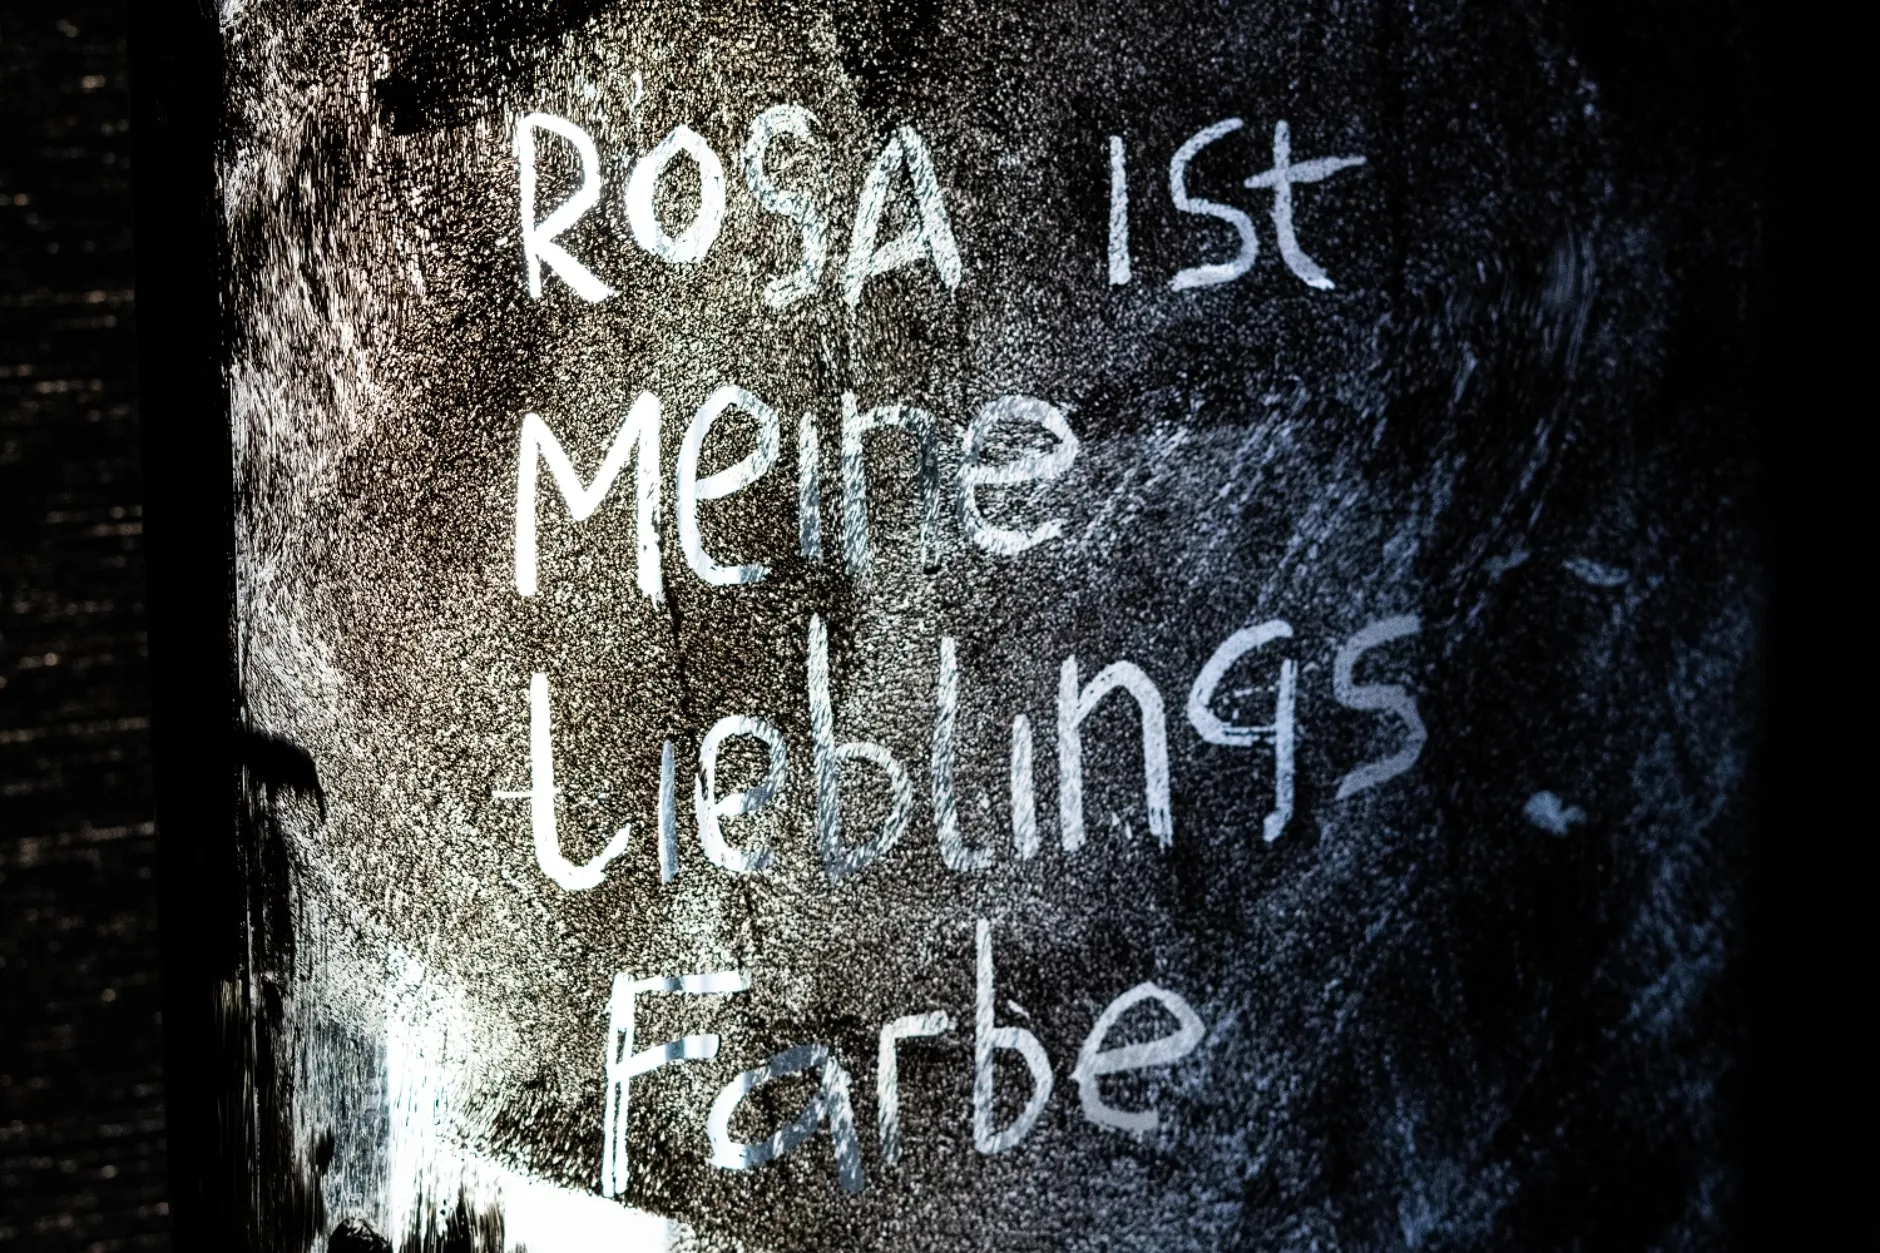 ROSA ist
Meine
Lieblings
Farbe